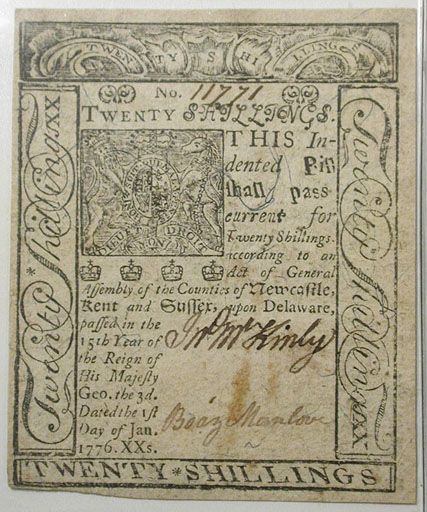 TWENTY SHILLINGS
No. 11771
TWENTY SHILLINGS.
THIS In-
dented Bill
shall pass
current for
Twenty Shillings.
according to an
Act of General
Assembly of the Counties of Newcastle,
Kent and Sussex, upon Delaware,
passed in the
15th Year of
the Reign of
His Majesty
Geo. the 3d.
Dated the 1st
Day of Jan.
1776. XXs.
Jno McKinly
Boaz Manlove
Twenty Shilling XX
Twenty Shilling XX
TWENTY*SHILLINGS